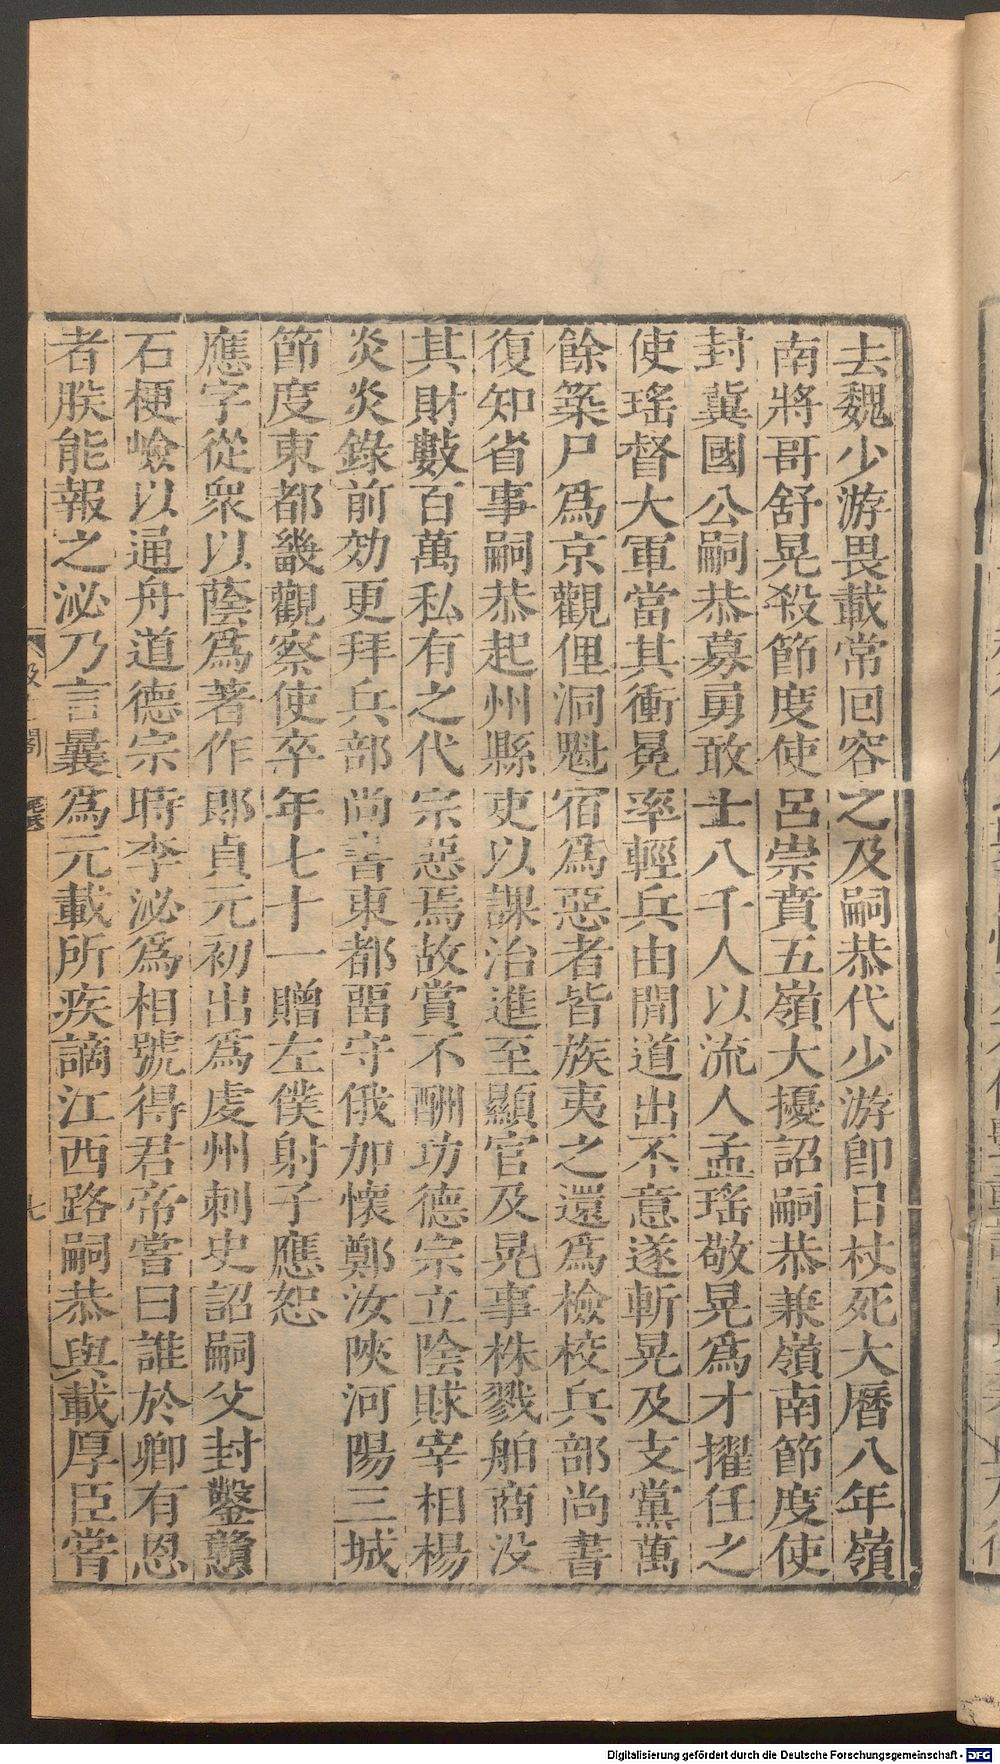 去魏少游畏載常回容之及嗣恭代少游卽日杖死大曆八年嶺
南將哥舒晃殺節度使呂崇賁五嶺大擾詔嗣恭兼嶺南節度使
封冀國公嗣恭募勇敢士八千人以流人孟瑤敬晃爲才擢任之
使瑤督大軍當其衝冕率輕兵由閒道出不意遂斬晃及支黨萬
餘築尸爲京觀俚洞魁宿爲惡者皆族夷之還爲檢校兵部尚書
復知省事嗣恭起州縣吏以課治進至顯官及晃事株戮舶商没
其財數百萬私有之代宗惡焉故賞不酬功德宗立陰賕宰相楊
炎炎錄前効更拜兵部尚書東都畱守俄加懷鄭汝陝河陽三城
節度東都畿觀察使卒年七十一贈左僕射子應恕
應字從衆以蔭爲著作郎貞元初出爲虔州刺史詔嗣父封鑿贛
石梗嶮以通舟道德宗時李泌爲相號得君帝嘗曰誰於卿有恩
者朕能報之泌乃言曩爲元載所疾謫江西路嗣恭與載厚臣嘗
七
Digitalisierung gefördert durch die Deutsche Forschungsgemeinschaft - DFG